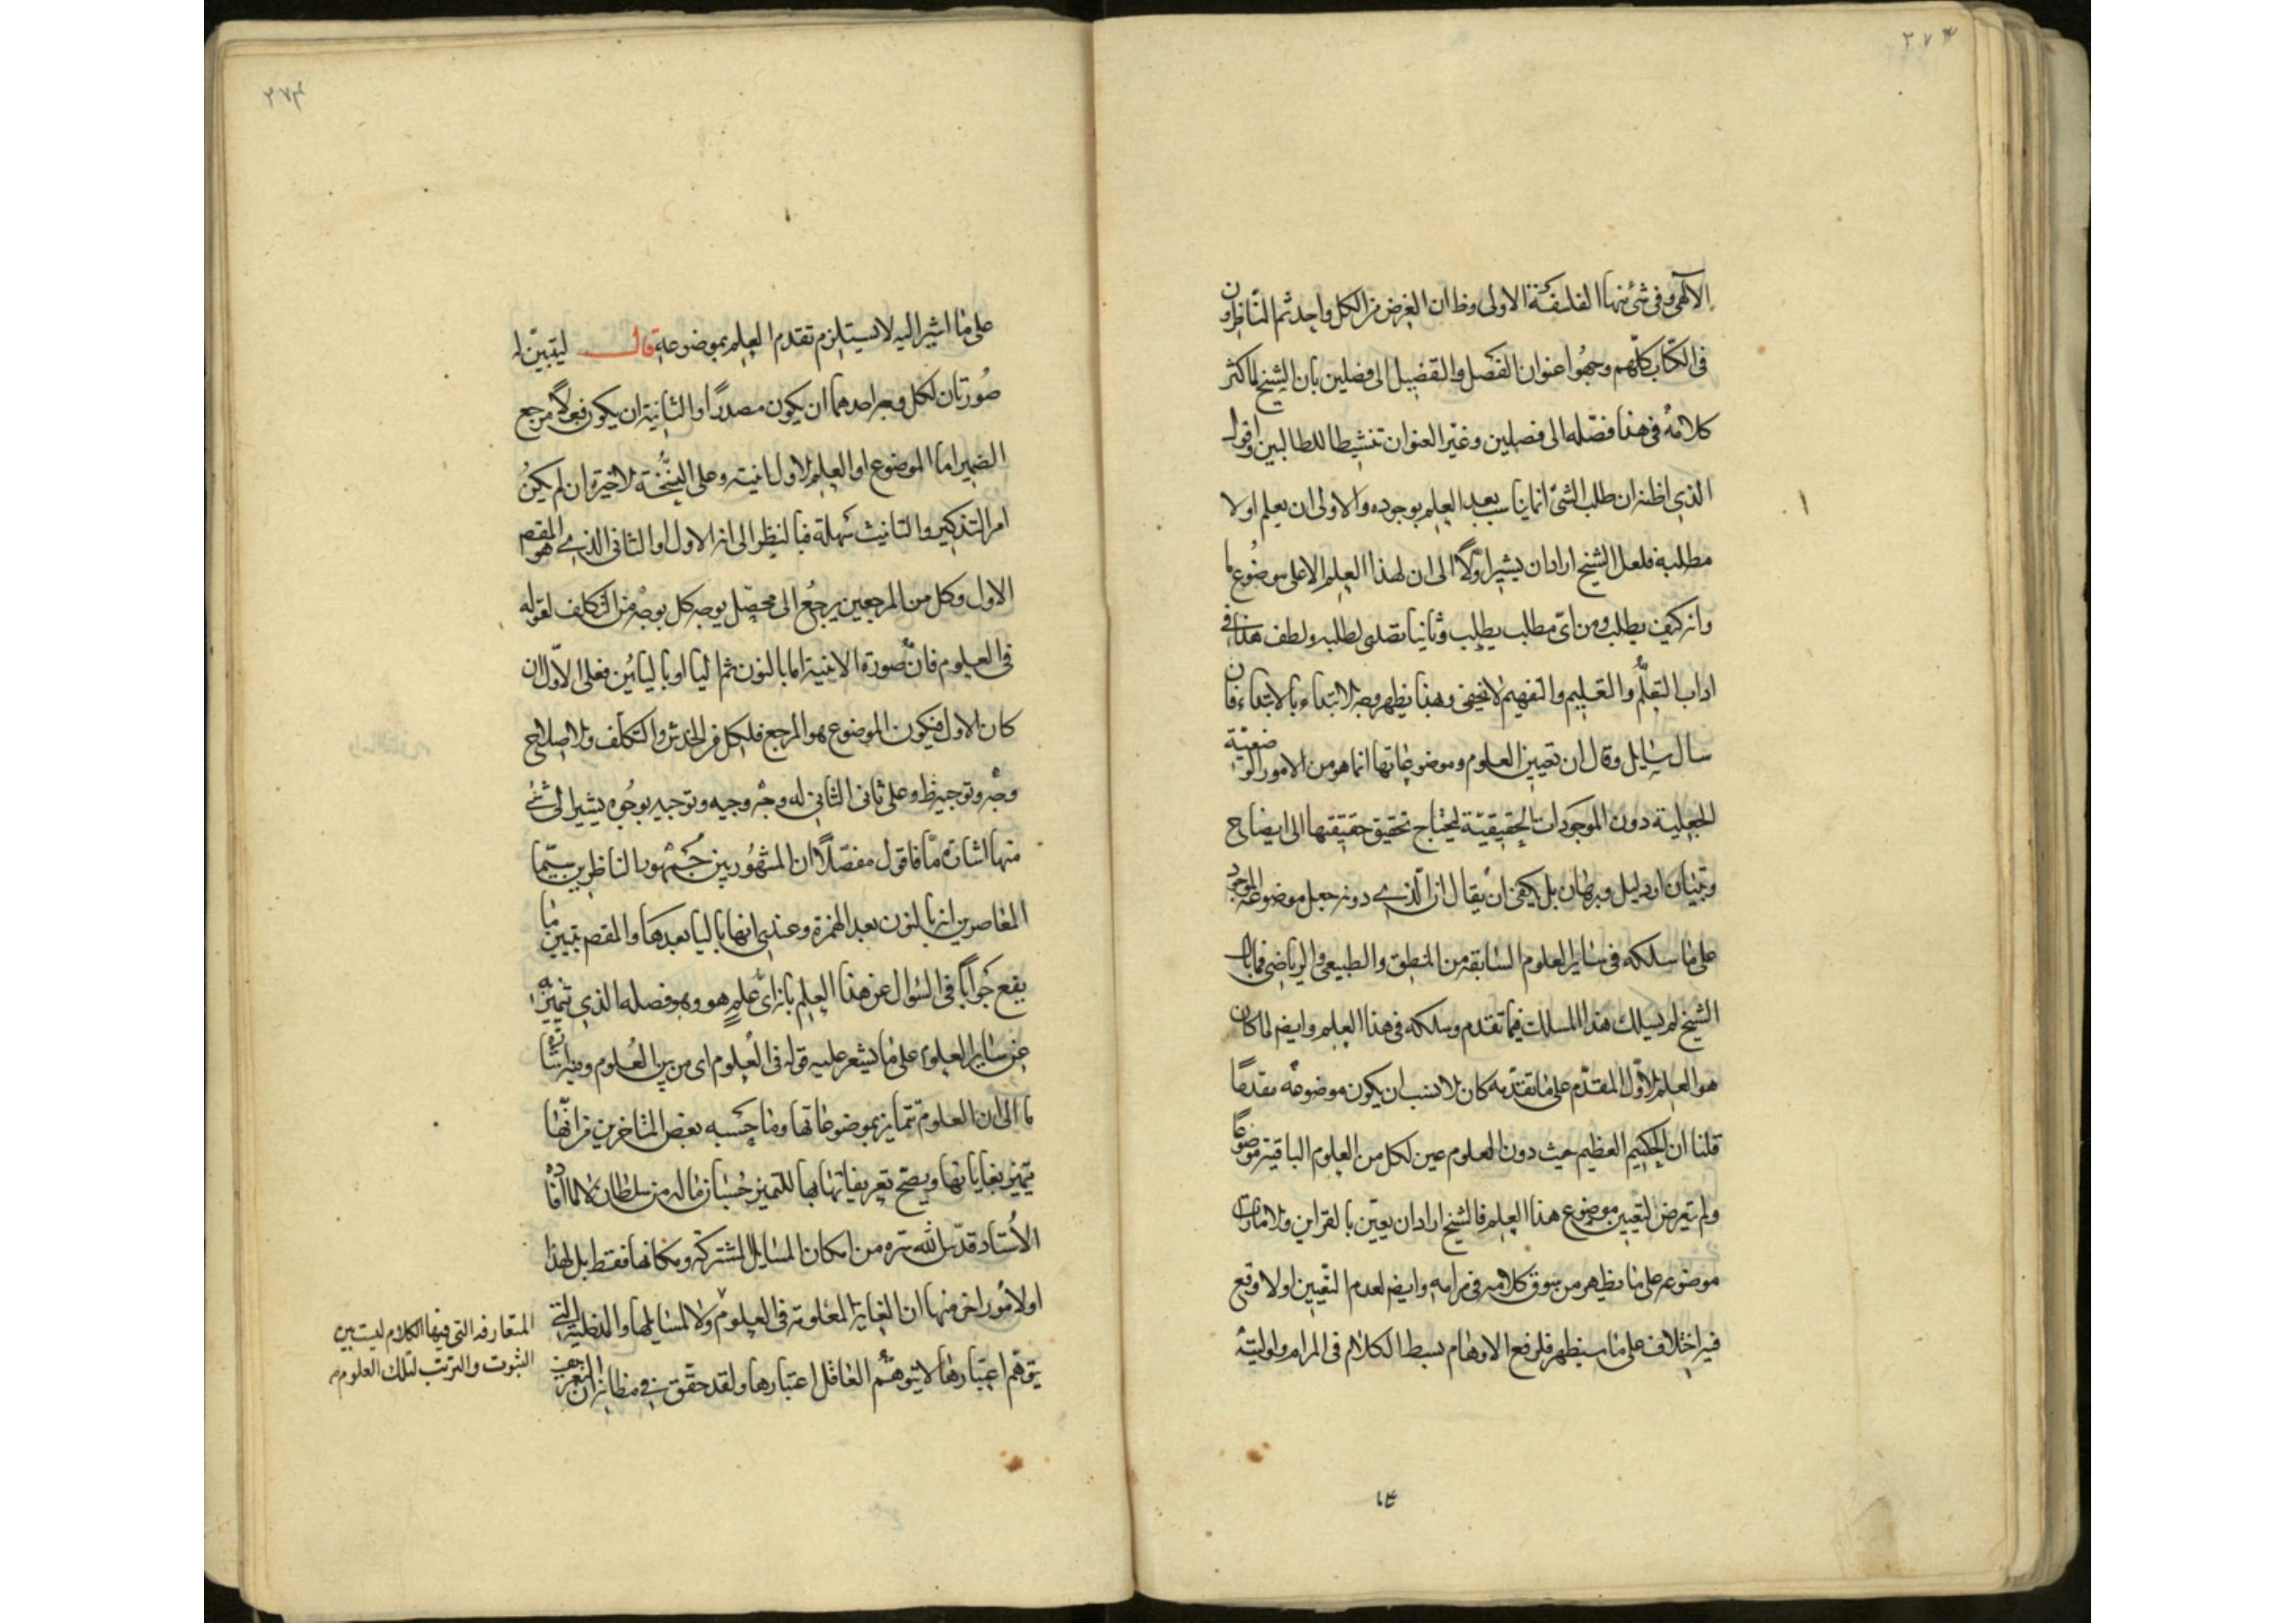 ٢٧٤
الآلهى وفى شئ منها الفلسفة الاولى وظ ان الغرض من الكل واحد ثم الناظرون
فى الكتاب كلهم وجهوا عنوان الفصل والتفصيل الى فصلين بان الشيخ لما كثر
كلامه فى هذا فصّله الى فصلين وغيّر العنوان تنشيطا للطالبين واقول
الذى اظنه ان طلب الشئ انما يناسب بعد العلم بوجوده والاولى ان يعلم اولا
مطلبه فلعل الشيخ اراد ان يشير اولاً الى ان لهذا العلم الاعلى موضوع ما
وانه كيف يطلب ومن اى مطلب يطلب وثانيا تصدى لطلبه ولطف هذا فى
اداب التعلّم والتعليم والتفهيم لا يخفى وبهذا يظهر وجه الابتداء بالابتداء فان
سال سايل وقال ان تعيين العلوم وموضوعاتها انما هو من الامور الوضعيّة
الجعلية دون الموجودات الحقيقيّة ليحتاج تحقيق حقيقتها الى ايضاح
وتبيان او دليل وبرهان بل يكفى ان يقال ان الذى دونه جعل موضوعه الموجود
على ما سلكه فى ساير العلوم السابقة من المنطق والطبيعى والرياضى فما بال
الشيخ لم يسلك هذا المسلك فيما تقدم وسلكه فى هذا العلم وايضا لما كان
هو العلم الاوّل المقدّم على ما تقدّمه كان الانسب ان يكون موضوعه مقدمًا
قلنا ان الحكيم العظيم حيث دون العلوم عين لكل من العلوم الباقية موضوعًا
ولم يتعرض لتعيين موضوع هذا العلم فالشيخ اراد ان يعيّن بالقراين والامارات
موضوعه على ما يظهر من سوق كلامه فى مرامه وايضا لعدم التعيين اولا وقع
فيه اختلاف على ما سيظهر فلرفع الاوهام بسط الكلام فى المرام ولوليته
١٤
٢٧٤
على ما اشير اليه لا يستلزم تقدم العلم بموضوعه قال ليتبيّن له
صورتان لكل وجه احدهما ان يكون مصدرًا والثانية ان يكون فعلاً مرجع
الضمير اما الموضوع او العلم الاول انيته وعلى النسخة الاخيرة ان لم يكن
امر التذكير والتانيث سهلة فبالنظر الى انه الاول او الثانى الذى هو المقصم
الاول وكل من المرجعين يرجع الى محصّل بوجه كل بوجه من التكلف لقوله
فى العلوم فانّ صورة الانية اما بالنون ثم اليا او باليائين فعلى الاوّل ان
كان الاول فيكون الموضوع هو المرجع فلكل من الحدس والتكلف والاصلاح
وجه وتوجيه ظ وعلى ثانى الثانى له وجه وجيه وتوجيه بوجوه يشير الى شئ
منها اشارة ما فاقول مفصّلاً ان المشهور بين جمهور الناظرين سيّما
المعاصرين انه بالنون بعد الهمزة وعندى انها باليا بعدها والمقصم تبيين ما
يقع جوابًا فى السؤال عن هذا العلم بانه اىّ علمٍ هو وهو فصله الذى تميّز به
عن ساير العلوم على ما يشعر عليه قوله فى العلوم اى من بين العلوم ومنه اشارة
ما الى ان العلوم تتمايز بموضوعاتها وما حسبه بعض المتاخرين من انّها
يتميّز بغاياتها ويصحّ تعريفاتها بها للتميز حُسبان ماله من سلطان لا لما افاده
الاستاد قدّس الله سره من امكان المسايل المشتركه ومكانها فقط بل لهذا
اولامور اخر منها ان الغاية المعلومة فى العلوم والمسايلها والدخلية التى
يتوهّم اعتبارها لا يتوهّم العاقل اعتبارها ولقد حقق فى مظانه ان التعريف
المتعارفه التى فيها الكلام ليست بين
الثبوت والترتب لتلك العلوم